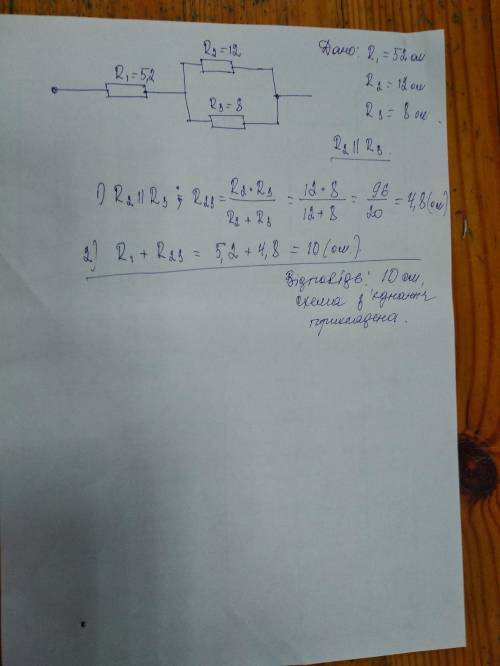 R₂=12
R₁=5,2
R₃=8
Дано: R₁ = 52 ом
R₂ = 12 ом
R₃ = 8 ом.
R₂ || R₃
1) R₂ || R₃ ; R₂₃ = R₂·R₃ / R₂+R₃ = 12·8 / 12+8 = 96 / 20 = 4,8 (ом)
2) R₁ + R₂₃ = 5,2 + 4,8 = 10 (ом)
Відповідь: 10 ом,
схема з'єднання
прикладена.